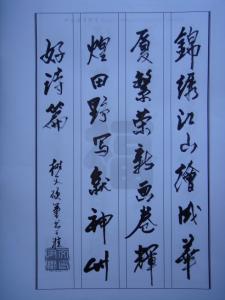 錦绣江山繪成華
夏繁荣新画卷輝
煌田野写就神州
好诗篇